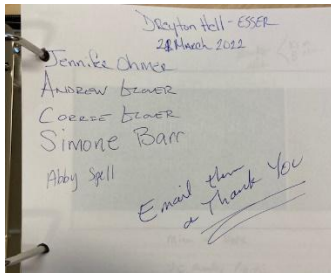 Drayton Hall - ESSER
21 March 2022
Jennifer Ohmer
ANDREW
CORRIE
Simone Barr
Abby Spell
Email them
a Thank You